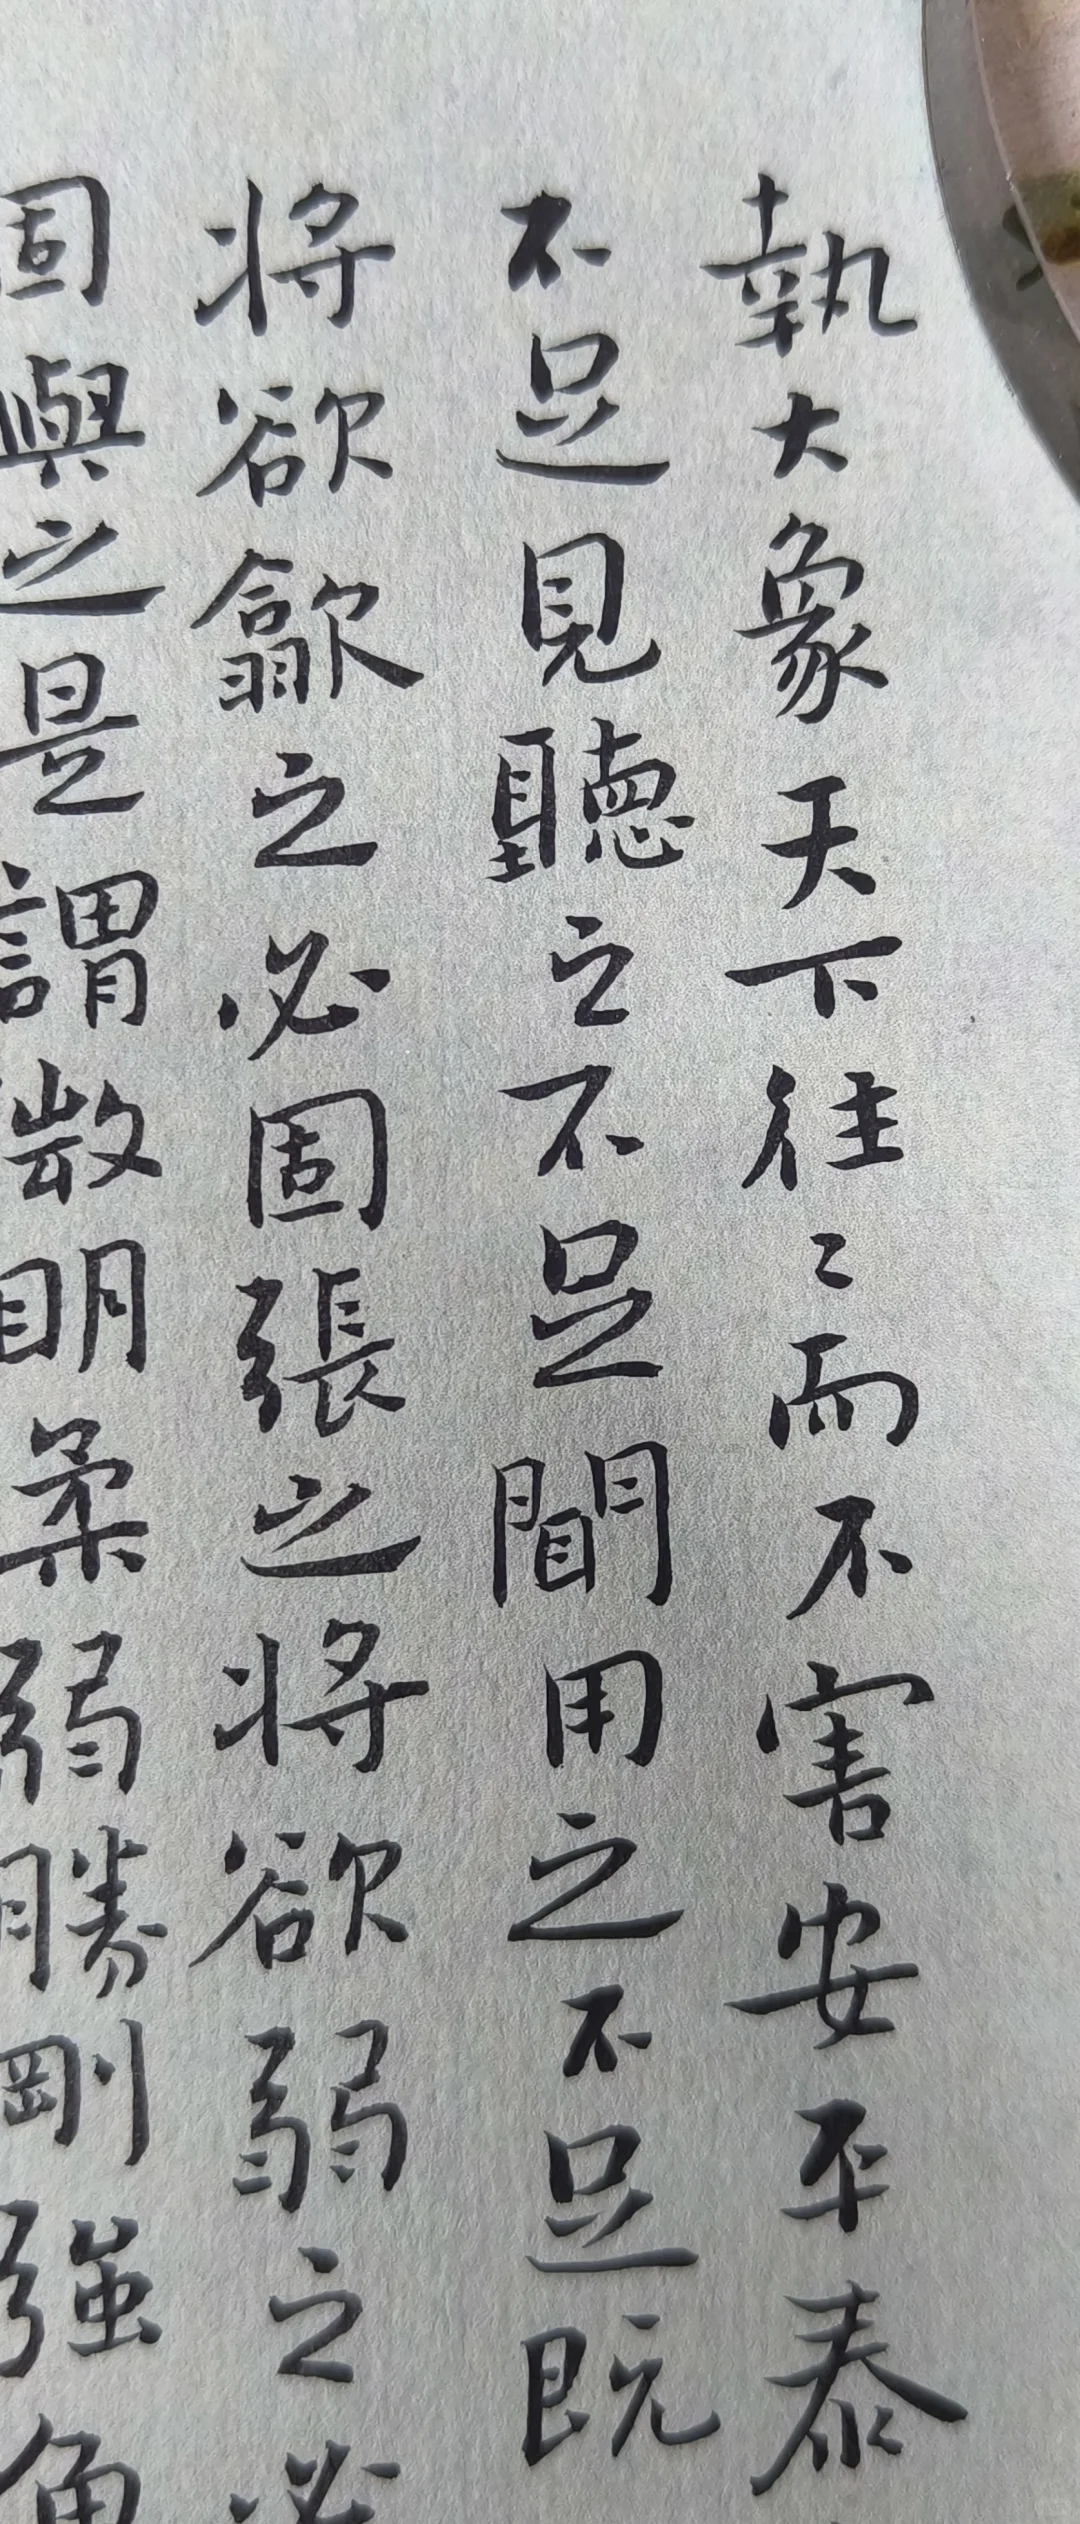 執大象天下往〻而不害安平泰
不足見聽之不足聞用之不足既
將欲歙之必固張之將欲弱之必
固與之是謂微明柔弱勝剛強魚